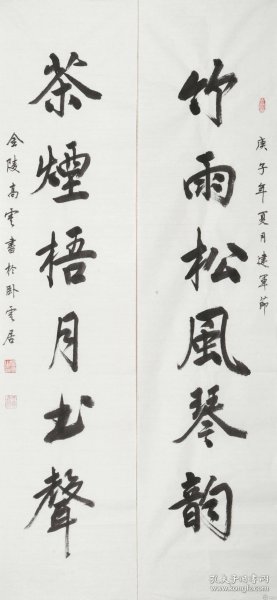 庚子年夏月建军節
竹雨松風琴韵
茶煙梧月书聲
金陵高雲書於卧雲居
孔夫子旧书网